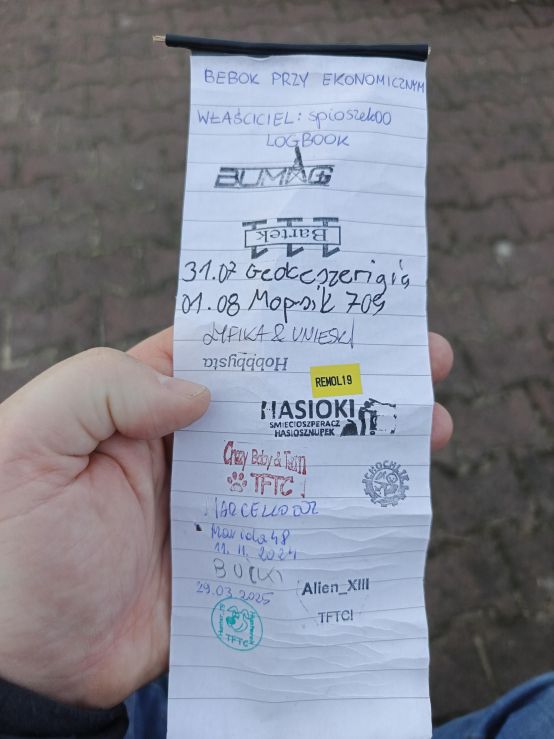 BEBOK PRZY EKONOMICZNYM
WŁAŚCICIEL: spioszek00
LOGBOOK
BUMAG
111
Bartek
31.07 Geokeszerigia
01.08 Mopsik 709
Hobbysta
REMOL19
HASIOKI
SMIECIOSZPERACZ
HASIOSZNUPEK
Crazy Baby & Twin
TFTC!
CHOCHLIK
MARCELLODDZ
Mariola48
11.11.2024
29.03.2025
Alien_XIII
TFTC!
TFTC